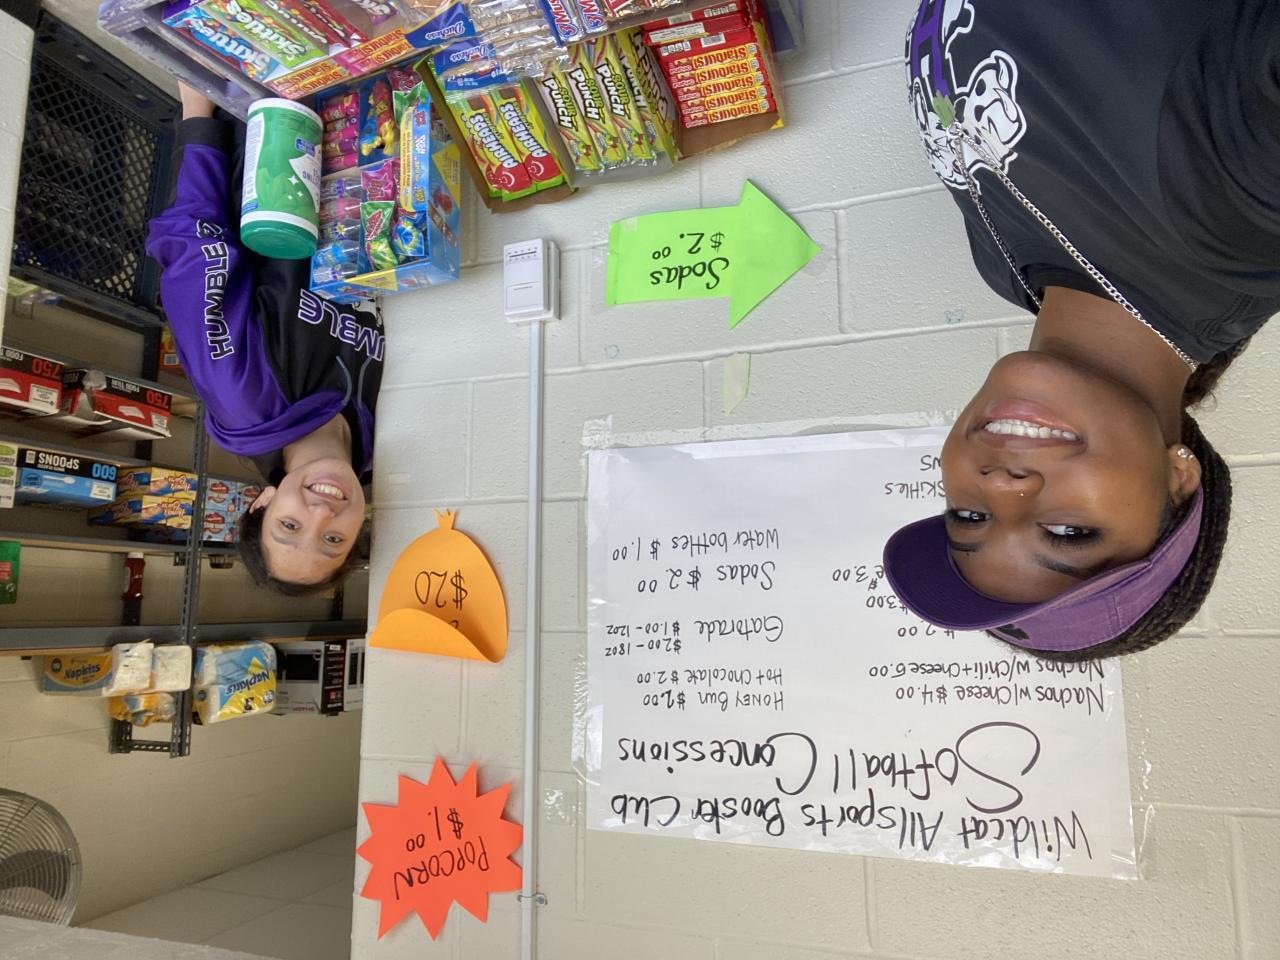 Wildcat Allsports Booster Club
Softball Concessions
Nachos w/Cheese $4.00
Nachos w/Chili+Cheese 5.00
2.00
$3.00
3.00
Skittles
Honey Bun $2.00
Hot Chocolate $2.00
Gatorade $2.00-18oz
$1.00-12oz
Sodas $2.00
Water bottles $1.00
POPCORN
$1.00
$20
Sodas
$2.00
HUMBLE
HUMBLE
Skittles
Skittles
Starburst
Starburst
Starburst
Starburst
Starburst
AIRHEADS
AIRHEADS
SOUR PUNCH
SOUR PUNCH
Duchess
Duchess
Napkins
Napkins
600
SPOONS
750
FOOD TRAY
750
FOOD TRAY